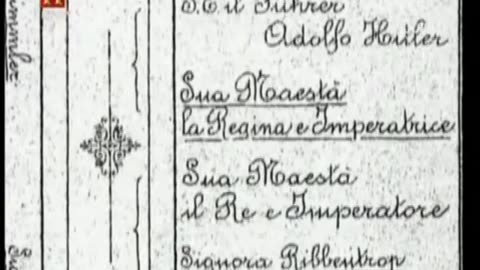 S.E il Führer
Adolfo Hitler
Sua Maestà
la Regina e Imperatrice
Sua Maestà
il Re e Imperatore
Signora Ribbentrop